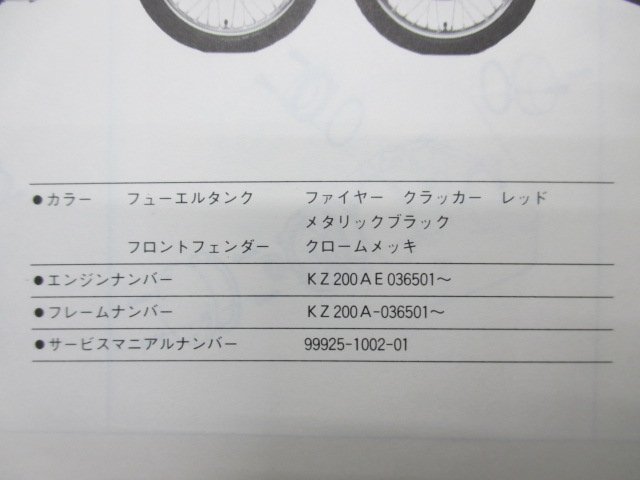 ●カラー フューエルタンク ファイヤー クラッカー レッド
メタリックブラック
フロントフェンダー クロームメッキ
●エンジンナンバー KZ200AE036501～
●フレームナンバー KZ200A-036501～
●サービスマニアルナンバー 99925-1002-01